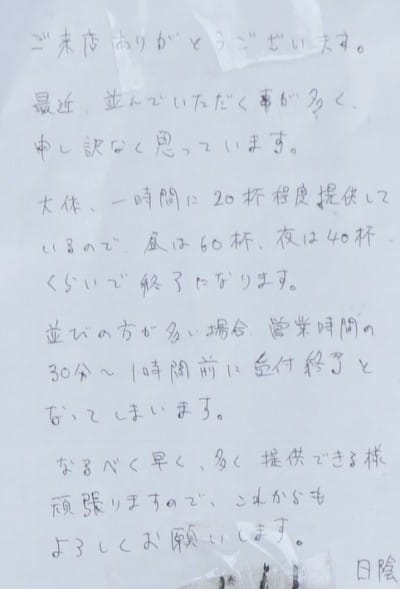 ご来店ありがとうございます。
最近、並んでいただく事が多く、
申し訳なく思っています。
大体、一時間に20杯程度提供して
いるので、昼は60杯、夜は40杯
くらいで終了になります。
並びの方が多い場合、営業時間の
30分〜1時間前に受付終了と
なってしまいます。
なるべく早く、多く提供できる様
頑張りますので、これからも
よろしくお願いします。
日陰